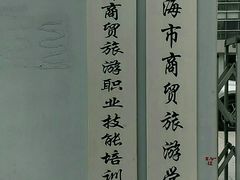 海市商贸旅游学
商贸旅游职业技能培训